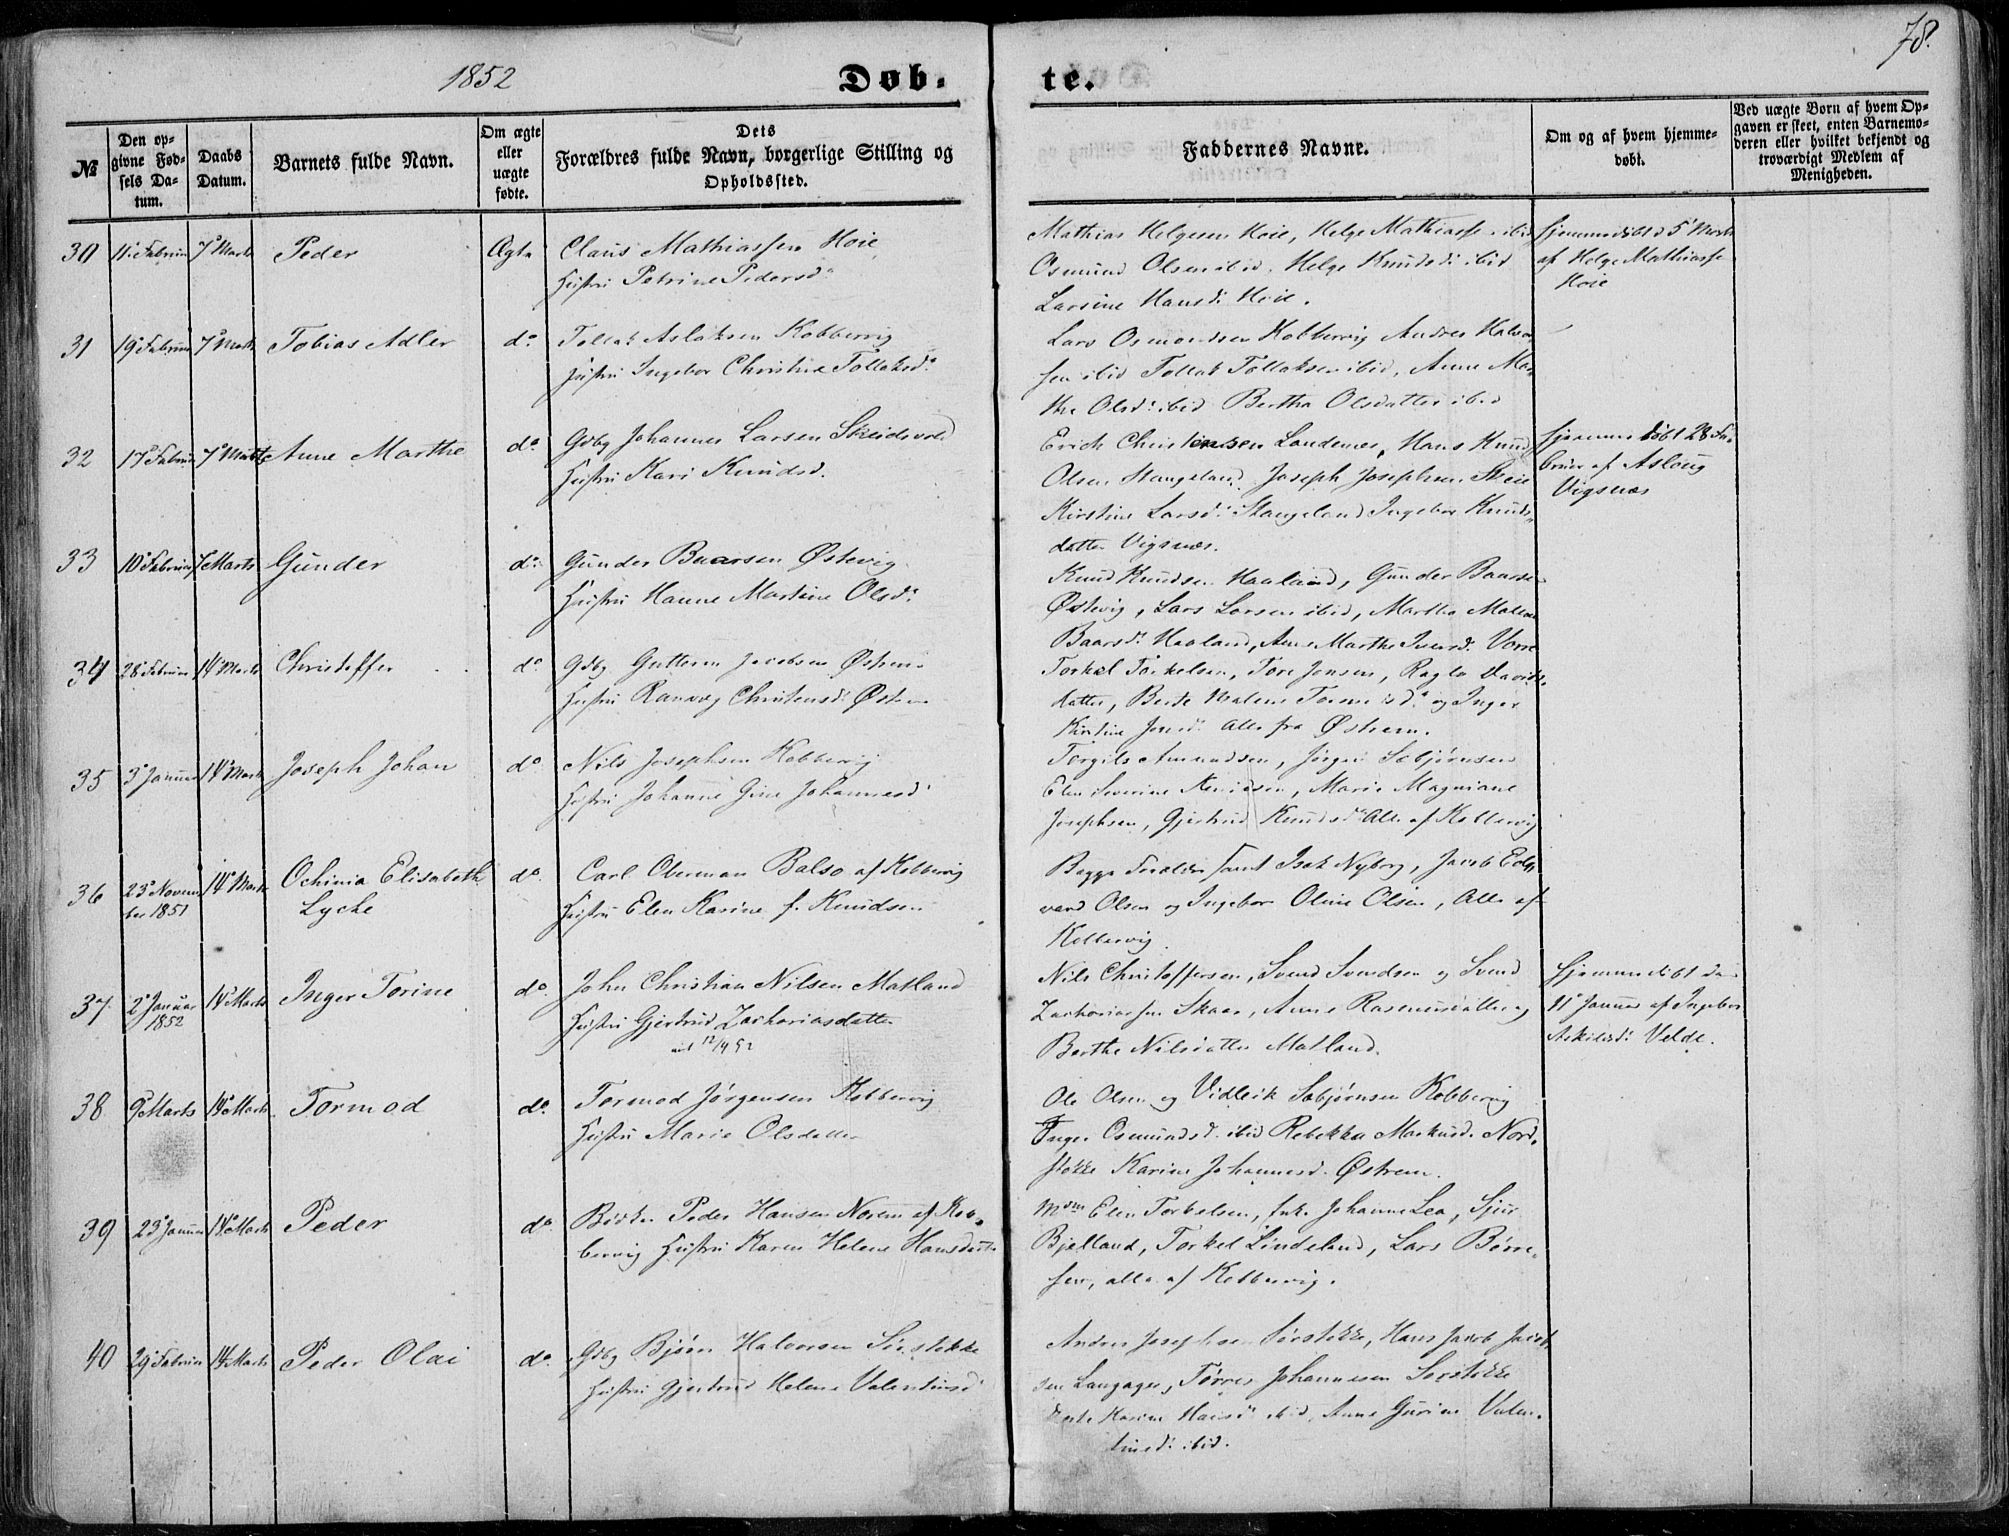 78.
1852
Døb-
te.
№
Den op-
givne Fød-
sels Da-
tum.
Daabs
Datum.
Barnets fulde Navn.
Om ægte
eller
uægte
fødte.
Dets
Forældres fulde Navn, borgerlige Stilling og
Opholdssted.
Faddernes Navne.
Om og af hvem hjemme-
døbt.
Ved uægte Børn af hvem Op-
gaven er skeet, enten Barnemo-
deren eller hvilket bekjendt og
troværdigt Medlem af
Menigheden.
30 11 Februar 7 Marts Peder Ægte Claus Mathiassen Høie
Hustru Petrine Pedersd.
Mathias Helgesen Høie, Helge Mathiass. ibid
Osmund Olsen ibid. Helge Knudsd. ibid
Larsine Hansd. Høie.
Hjemmedøbt d 5 Marts
af Helge Mathiass.
Høie
31 19 Februar 7 Marts Tobias Adler do. Tollak Aslaksen Kobbervig
Hustru Ingebor Christine Tollaksd.
Lars Osmondsen Kobbervig Andres Halvor
sen ibid Tollak Tollaksen ibid, Anne Mar
the Olsd. ibid Bertha Olsdatter ibid
32 17 Februar 7 Marts Anne Marthe do. Gdbg Johannes Larsen Skeidsvold
Hustru Kari Knudsd.
Erich Christensen Landenes, Hans Knud
Olsen Stangeland. Joseph Josephsen Skeie
Kirstine Larsd. Stangeland Ingebor Knuds-
datter Vigsnes.
Hjemmedøbt 28 Fe-
bruar af Asloug
Vigsnæs
33 10 Februar 7 Marts Gunder do. Gunder Baarsen Østevig
Hustru Hanne Martine Olsd.
Knud Knudsen Haaland, Gunder Baarse
Østevig, Lars Larsen ibid, Martha Malene
Baarsd. Haaland, Anne Marthe Iversd. Vorre
34 28 Februar 14 Marts Christoffer do. Gdbg Guttorm Jacobsen Østrem
Hustru Ranveg Christensd. Østrem
Torkel Torkelsen, Tore Jonsen, Davids-
datter, Berte Malene og Inger
Kirstine Alle fra Østrem.
35 3 Januar 14 Marts Joseph Johan do. Nils Josephsen Kobbervig
Hustru Johanne Gine Johannesd.
Torgils Amundsen, Jørgen Sebjørnsen
Elen Severine Marie Magniane
Josephsen, Gjertrud Knudsd. Alle af Kobbervig
36 23 Novem
ber 1851 14 Marts Ochinia Elisabeth
Lyche do. Carl Oberman Balso af Kobbervig
Hustru Elen Karine f. Knudsen
Begge Forældre samt Isak Nyborg, Jacob Ed-
vard Olsen og Ingebor Oline Olsen, Alle af
Kobbervig.
37 2 Januar
1852 14 Marts Inger Torine do. John Christian Nilsen Matland
Hustru Gjertrud Zachariasdatter
12/4 52
Nils Christoffersen, Svend Svendsen og Svend
Zachariassen Skaar, Anne Rasmusdatter og
Berthe Nilsdatter Matland.
Hjemmedøbt den
11 Januar af Ingebor
Velde.
38 9 Marts 14 Marts Tormod do. Tormod Jørgensen Kobbervig
Hustru Marie Olsdatter
Ole Olsen og Vidleik Sebjørnsen Kobbervig
Inger Osmundsd. ibid Rebekka Markusd. Nord-
støkke Karine Johannesd. Østrem.
39 23 Januar 14 Marts Peder do. Bødker Peder Hansen Norem af Kob-
bervig Hustru Karen Helene Hansdatter
Mdm Elen Torkelsen, Enke Johanne Lea, Sjur
Bjelland, Torkel Lindeland, Lars Børre-
sen, alle af Kobbervig.
40 29 Februar 14 Marts Peder Olai do. Gdbg Bjørn Halvorsen Sørstøkke
Hustru Gjertrud Helene Valentinsd.
Andres Josephsen Sørstøkke, Hans Jacob Jacob
sen Langager, Tørres Johannesen Sørstøkke
Karine Hansd. ibid, Anne Gurine Valen-
tinsd. ibid.